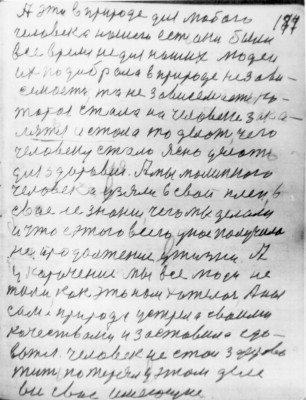 А эти в природе для любого 177
человека нашего
все время не для наших людей
их подобрала в природе незави-
симость та не зависимость ко-
торая стала на человека зака-
лятся и стала то делать, чего
человеку стало ясно делать
для здоровья. А мы
человека узяли в свой плен, в
свое не знание, чего мы делали
и что с этого всего у нас получало
на продолжение у жизни. А
у кармении мы все люди не
так, как это нам хотелось. А нас
сама природа устрела своими
качествами и заставила сдо-
вится. человек не стал здорово
жить потерял у этом деле
все свое имеющие